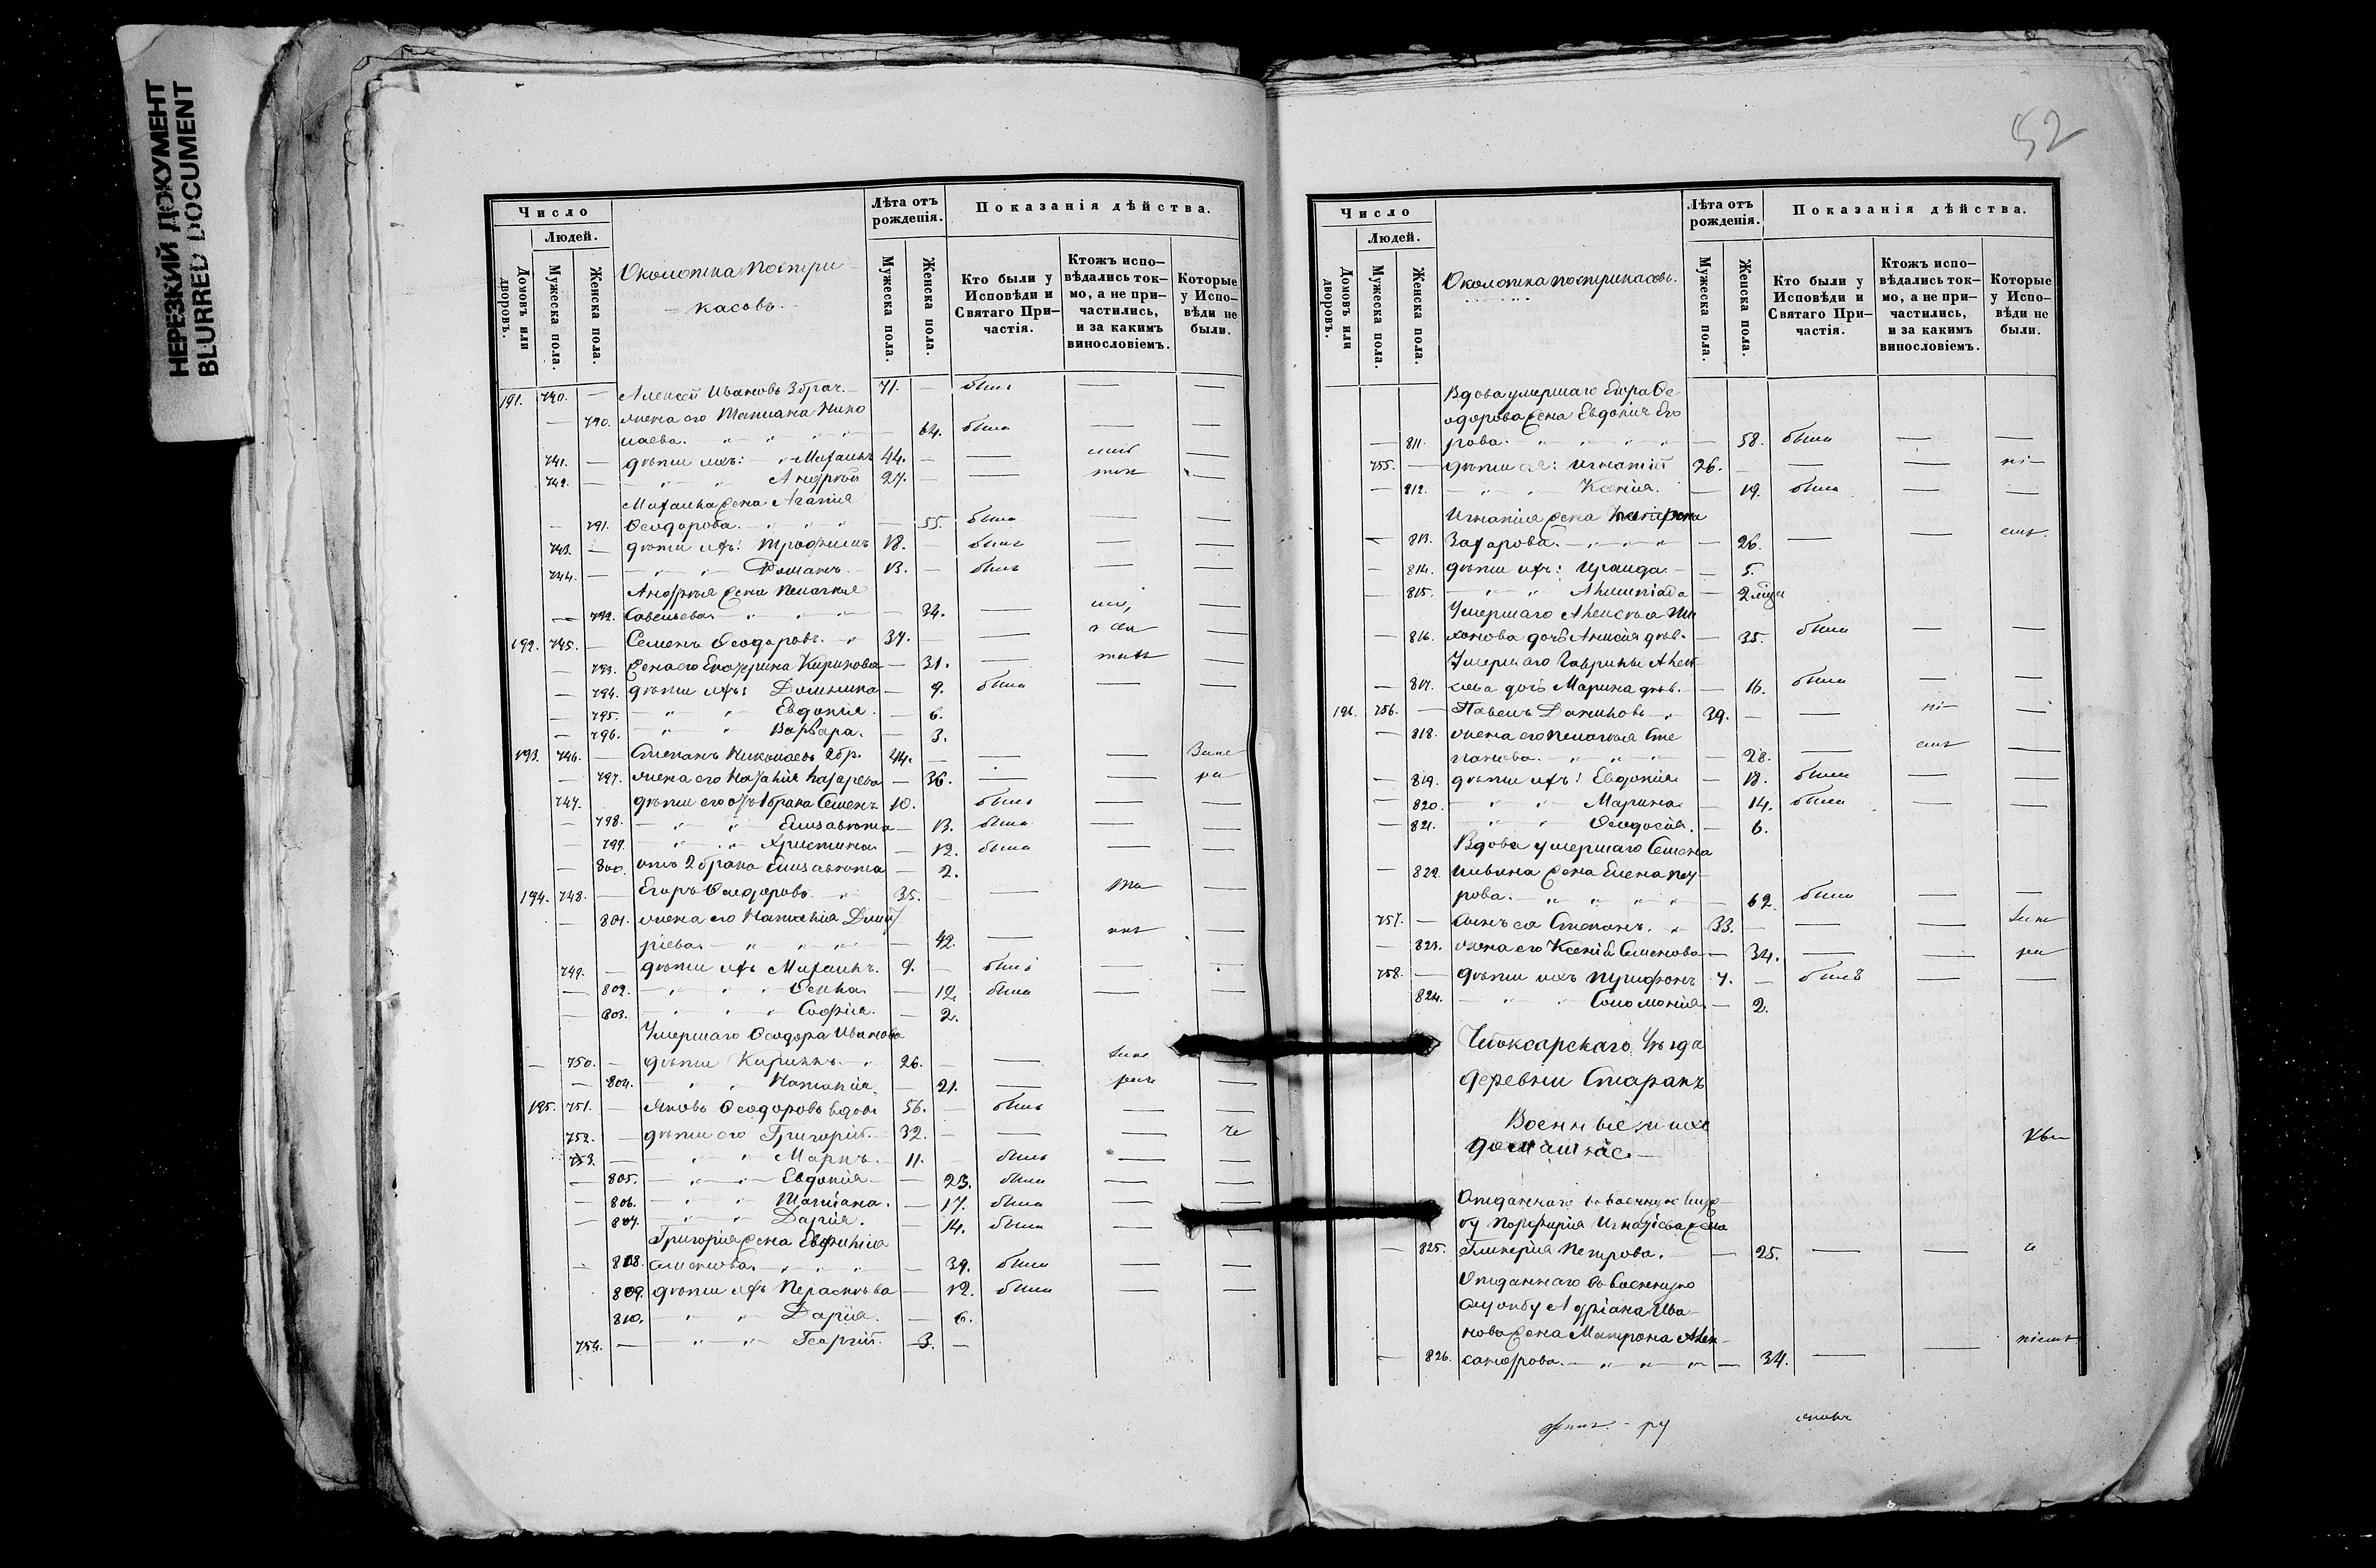 НЕРЕЗКИЙ ДОКУМЕНТ
BLURRED DOCUMENT
Число
Людей.
Домовъ или дворовъ.
Мужеска пола.
Женска пола.
Околотка Постри-
касовъ.
Лѣта отъ рожденія.
Мужеска пола.
Женска пола.
Показанія дѣйства.
Кто были у Исповѣди и Святаго При-частія.
Ктожъ испо-вѣдались ток-мо, а не при-частились, и за какимъ винословіемъ.
Которые у Испо-вѣди не были.
191. 740. — Алексѣй Ивановъ 3 брач. 71. — былъ — —
— 790. жена его Татiана Нико
лаева. — 64. была — —
741. — дѣти ихъ: Михаилъ 44. — —
742. — Андрей 27. — —
Михаила жена Агапія
— 791. Ѳеодорова. — 55. была — —
743. — дѣти ихъ: Трофимъ 18. — былъ — —
744. — Романъ. 13. — былъ — —
Андрея жена Пелагія
— 792. Савельева. — 34. —
192. 745. — Семенъ Ѳеодоровъ. 37. — —
— 793. жена его Екатерина Кирилова — 31. —
— 794. дѣти ихъ: Домника — 9. была — —
— 795. Евдокія. — 6.
— 796. Варвара. — 3.
193. 746. — Степанъ Николаевъ 2 бр. 44. — — —
— 797. жена его Наталія Назарева — 36. — —
747. дѣти его отъ 1 брака Семенъ 10. былъ — —
— 798. Елизавета — 13. была — —
— 799. Христина — 12. была — —
— 800. отъ 2 брака Елизавета — 2.
194. 748. — Егоръ Ѳеодоровъ 35. — —
— 801. жена его Наталія Дмит
ріева. — 42. —
749. — дѣти ихъ Михаилъ. 9. — былъ — —
— 802. Ѳекла — 12. была — —
— 803. Софія. — 2.
Умершаго Ѳеодора Иванова
— 750. — дѣти Кириллъ. 26. — —
— 804. Наталія — 21. —
195. 751. — Яковъ Ѳеодоровъ вдовъ 56. — былъ — —
752. — дѣти его Григорій. 32. — — —
753. — Маркъ. 11. — былъ — —
— 805. Евдокія — 23. была — —
— 806. Татіана. — 17. была — —
— 807. Дарія. — 14. была — —
Григорія жена Евфимія
— 808. Семенова. — 39. была — —
809. дѣти ихъ Параскева — 12. была — —
810. Дарія. — 6.
754. — Георгій. 3. —
52
Число
Людей.
Домовъ или дворовъ.
Мужеска пола.
Женска пола.
Околотка Пострикасовъ.
Лѣта отъ рожденія.
Мужеска пола.
Женска пола.
Показанія дѣйства.
Кто были у Исповѣди и Святаго При-частія.
Ктожъ испо-вѣдались ток-мо, а не при-частились, и за какимъ винословіемъ.
Которые у Испо-вѣди не были.
Вдова умершаго Егора Ѳе
одорова жена Евдокія Его
— 811. рова. — 58. была — —
755. — дѣти ея: Игнатій 26. — — —
— 812. Ксенія. — 19. была — —
Игнатія жена
— 813. Захарова. — 26. — —
— 814. дѣти ихъ: Ираида — 5.
— 815. — 2 мѣся
Умершаго Алексѣя Ти
— 816. хонова дочь Анисія дѣв. — 35. была — —
Умершаго Гаврилы Алек
— 817. сѣева дочь Марина дѣв. — 16. была — —
196. 756. — Павелъ Даниловъ 39. — — —
— 818. жена его Пелагія Сте
панова. — 28. — —
— 819. дѣти ихъ: Евдокія — 18. была — —
— 820. Марина — 14. была — —
— 821. Ѳеодосія. — 6.
Вдова умершаго Семена
— 822. Ильина жена Елена Пет
рова. — 62. была — —
757. — сынъ ея Степанъ. 33. — — —
— 823. жена его Ксенія Семенова — 34. — —
758. — дѣти ихъ Трифонъ 7. — былъ — —
824. Соломонія — 2.
Чебоксарскаго Уѣзда
деревни Старакъ
Военные и ихъ
домашніе. —
Отданнаго въ военную служ-
бу Порфирія Игнатіева жена
— 825. Гликерія Петрова. — 25. — —
Отданнаго въ военную
службу Адріана Ива-
нова жена Матрона Алек-
— 826. сандрова. — 34. — —